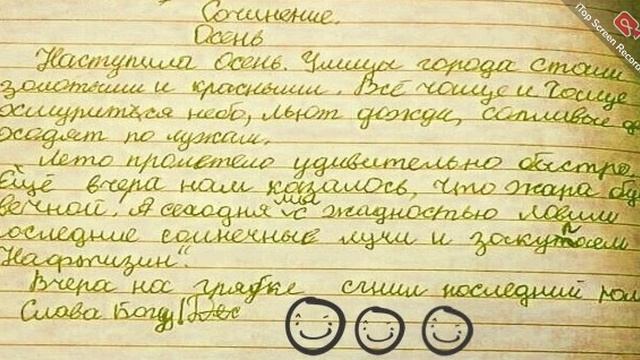 Сочинение.
Осень
Наступила осень. Улицы города стали
золотыми и красными. Всё чаще и чаще
хмурится небо, льют дожди, сопливые
ходят по лужам.
Лето пролетело удивительно быстро.
Ещё вчера нам казалось, что жара
вечной. А сегодня мы с жадностью ловим
последние солнечные лучи и закупаем
Нафтизин".
Вчера на грядке сгнил последний
Слава Богу
iTop Screen Recorder